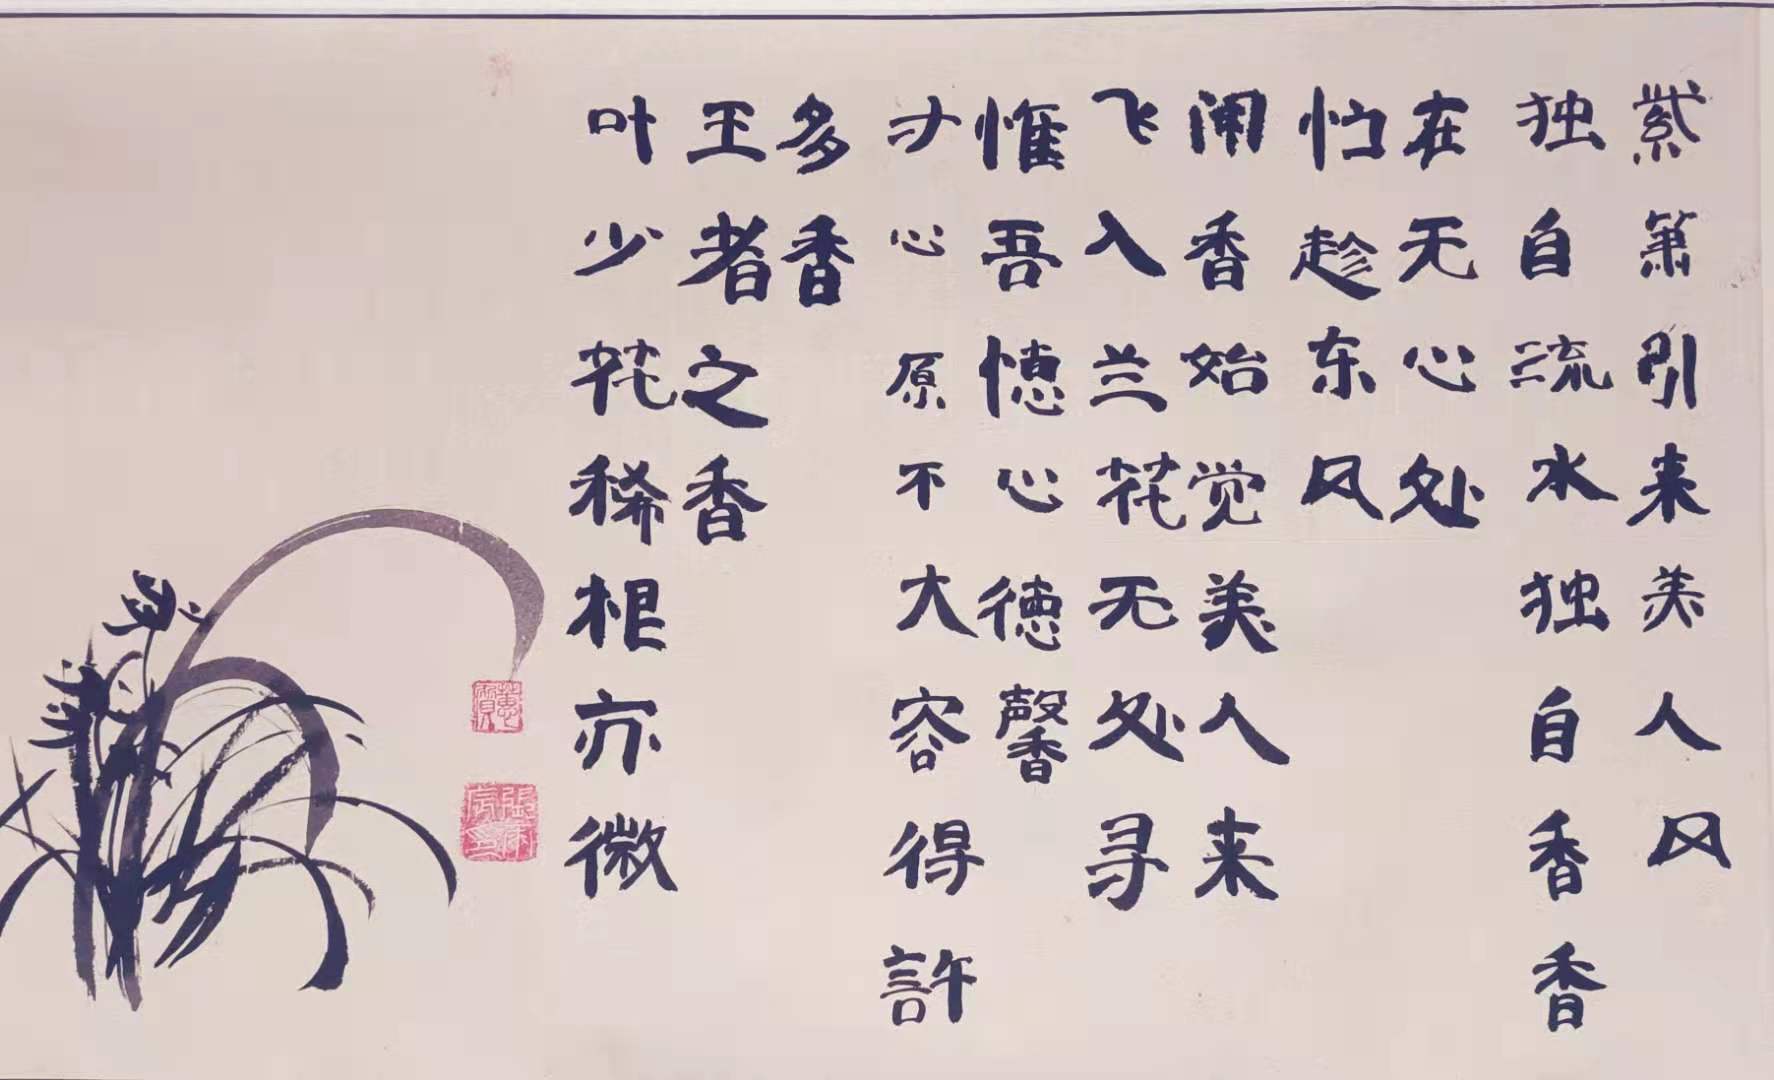 紫箫引来美人风
独自流水独自香香
在无心处
怕趁东风
闻香始觉美人来
飞入兰花无处寻
惟吾德心德馨
寸心原不大容得許
多香
王者之香
叶少花稀根亦微